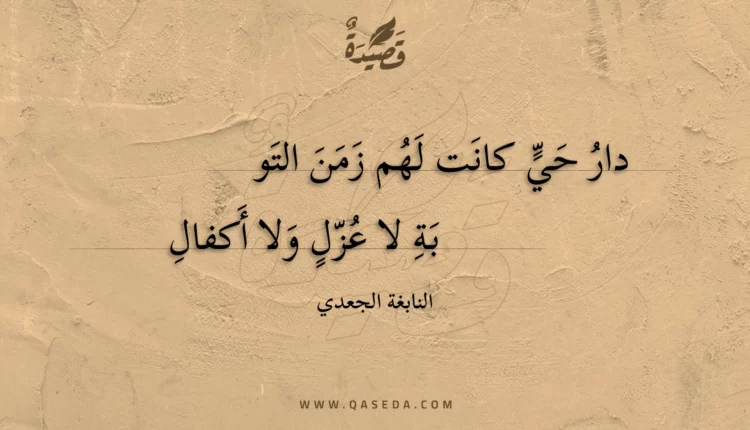 قَصِيدَةٌ
دارُ حَيٍّ كانَت لَهُم زَمَنَ التَو
بَةِ لا عُزّلٍ وَلا أَكفالِ
النابغة الجعدي
WWW.QASEDA.COM